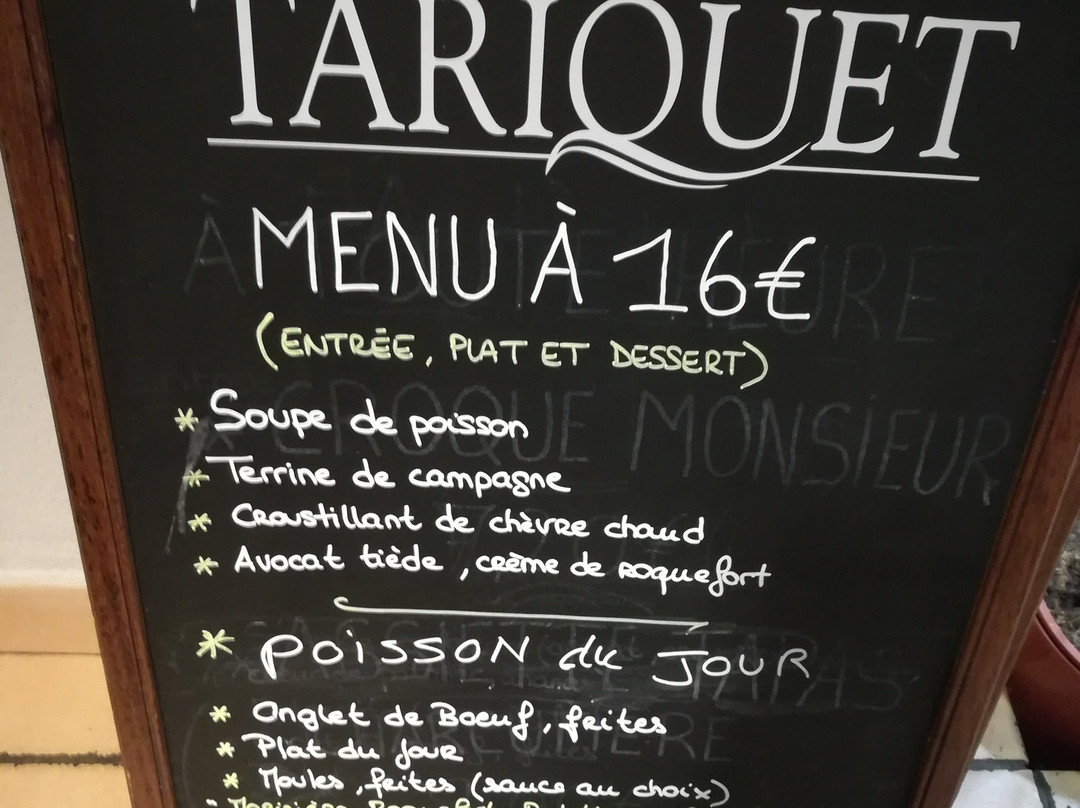 TARIQUET
MENU À 16€
(ENTRÉE, PLAT ET DESSERT)
* Soupe de poisson
* Terrine de campagne
* Croustillant de chèvre chaud
* Avocat tiède, crème de roquefort
* POISSON du JOUR
* Onglet de Boeuf, frites
* Plat du jour
* Moules, frites (sauce au choix)
À TOUTE HEURE
CROQUE MONSIEUR
TAPAS